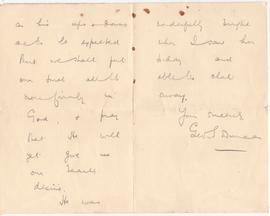 as his ups & downs
are to be expected
But we shall put
our trust all the
more firmly in
God, & pray
that He will
yet give us
our hearts
desire.
He was
wonderfully bright
when I saw him
today and
able to chat
away.
Yours sincerely
Geo. S. Duncan